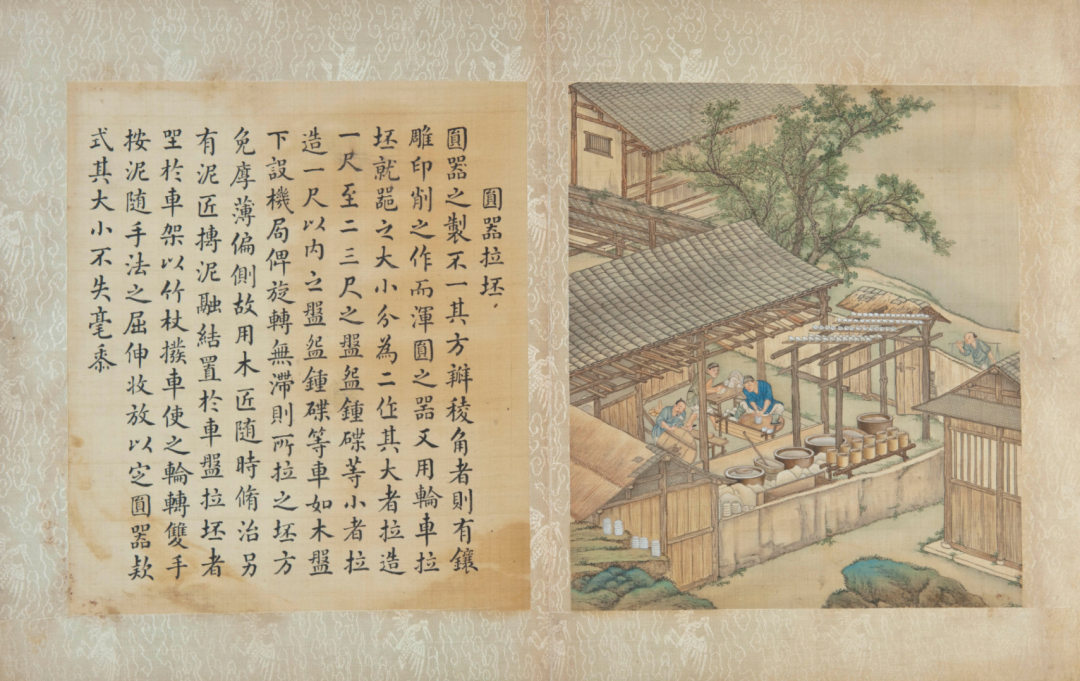 圓器拉坯
圓器之製不一其方瓣稜角者則有鑲
雕印削之作而渾圓之器又用輪車拉
坯就器之大小分為二作其大者拉造
一尺至二三尺之盤盌鍾碟等小者拉
造一尺以内之盤盌鍾碟等車如木盤
下設機局俾旋轉無滯則所拉之坯方
免厚薄偏側故用木匠随時脩治另
有泥匠摶泥融結置於車盤拉坯者
坐於車架以竹杖撥車使之輪轉雙手
按泥随手法之屈伸收放以定圓器款
式其大小不失毫黍